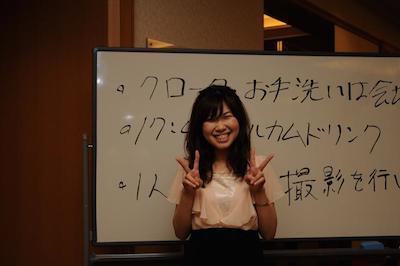 。クローク お手洗いは会
ルカムドリンク
。1人 撮影を行い